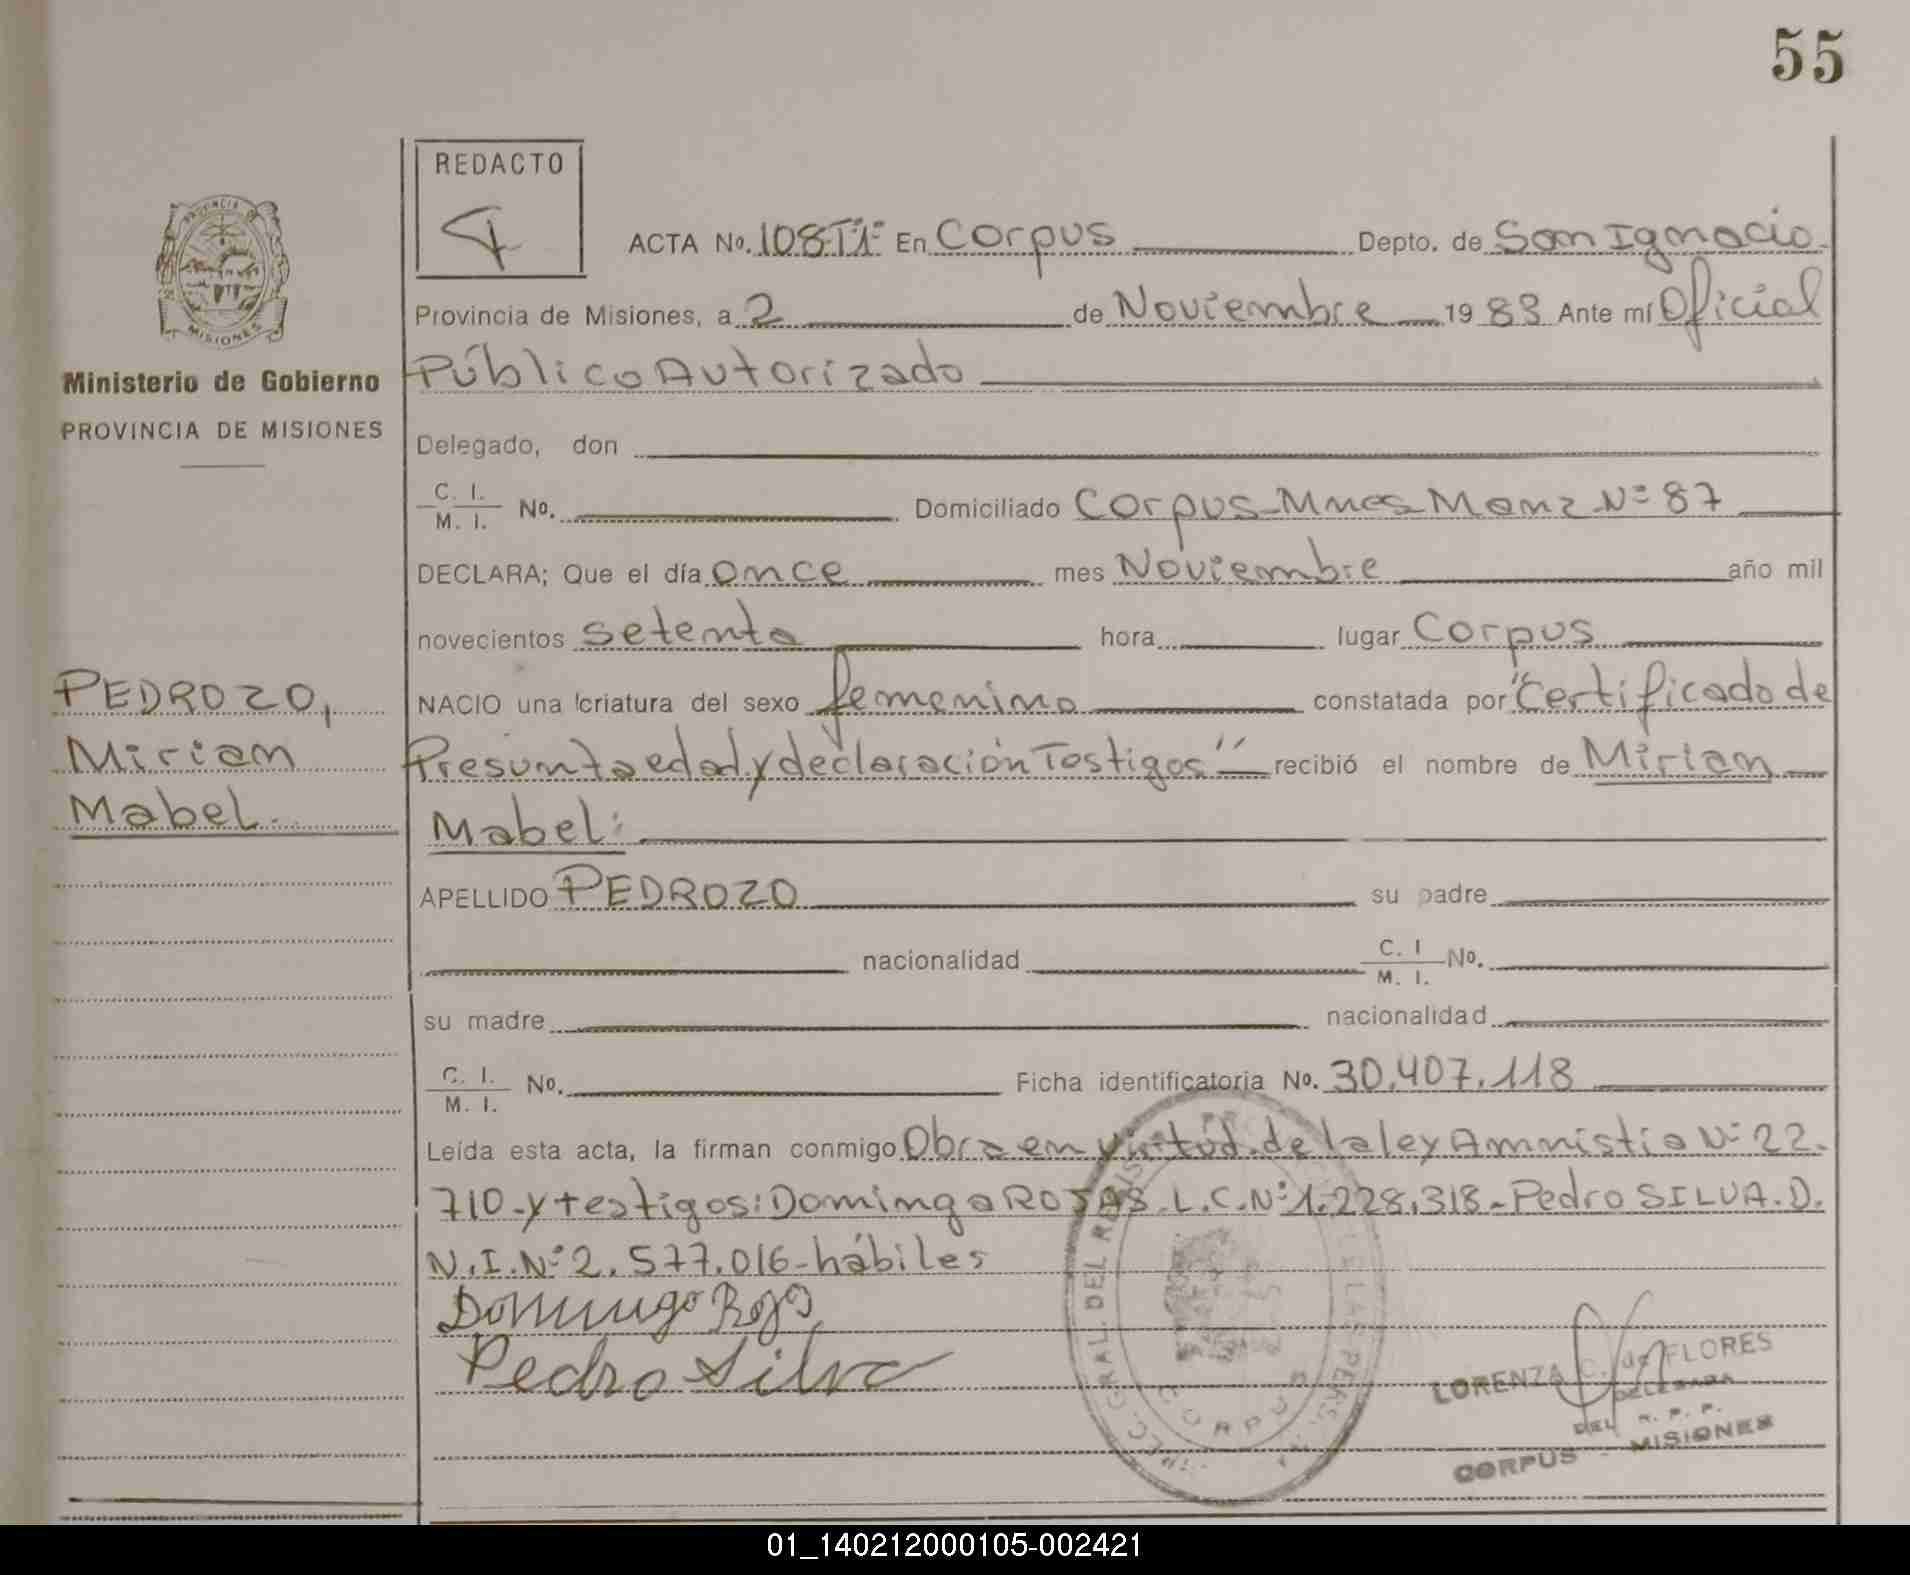 55
REDACTO
ACTA No. 108 T1º En Corpus Depto. de San Ignacio
Provincia de Misiones, a 2 de Noviembre 1983 Ante mí Oficial
Público Autorizado
Ministerio de Gobierno
PROVINCIA DE MISIONES
Delegado, don
C. I.
M. I. No. Domiciliado Corpus-Mnes Manz Nº 87
DECLARA; Que el día once mes Noviembre año mil
novecientos setenta hora lugar Corpus
PEDROZO,
Miriam
Mabel.
NACIO una criatura del sexo femenino constatada por "Certificado de
Presunta edad y declaración Testigos" recibió el nombre de Miriam
Mabel:
APELLIDO PEDROZO su padre
nacionalidad C. I
M. I. No.
su madre nacionalidad
C. I.
M. I. No. Ficha identificatoria No. 30.407.118
Leída esta acta, la firman conmigo Obra en virtud de la ley Amnistia Nº 22.
710-y testigos: Domingo ROJAS. L.C. Nº 1.228.318-Pedro SILVA. D.
N.I. Nº 2.577.016-hábiles
Domingo Rojas
Pedro Silva
LORENZA C. de FLORES
DELEGADA
DEL R. P. P.
CORPUS - MISIONES
CORPUS
01_140212000105-002421